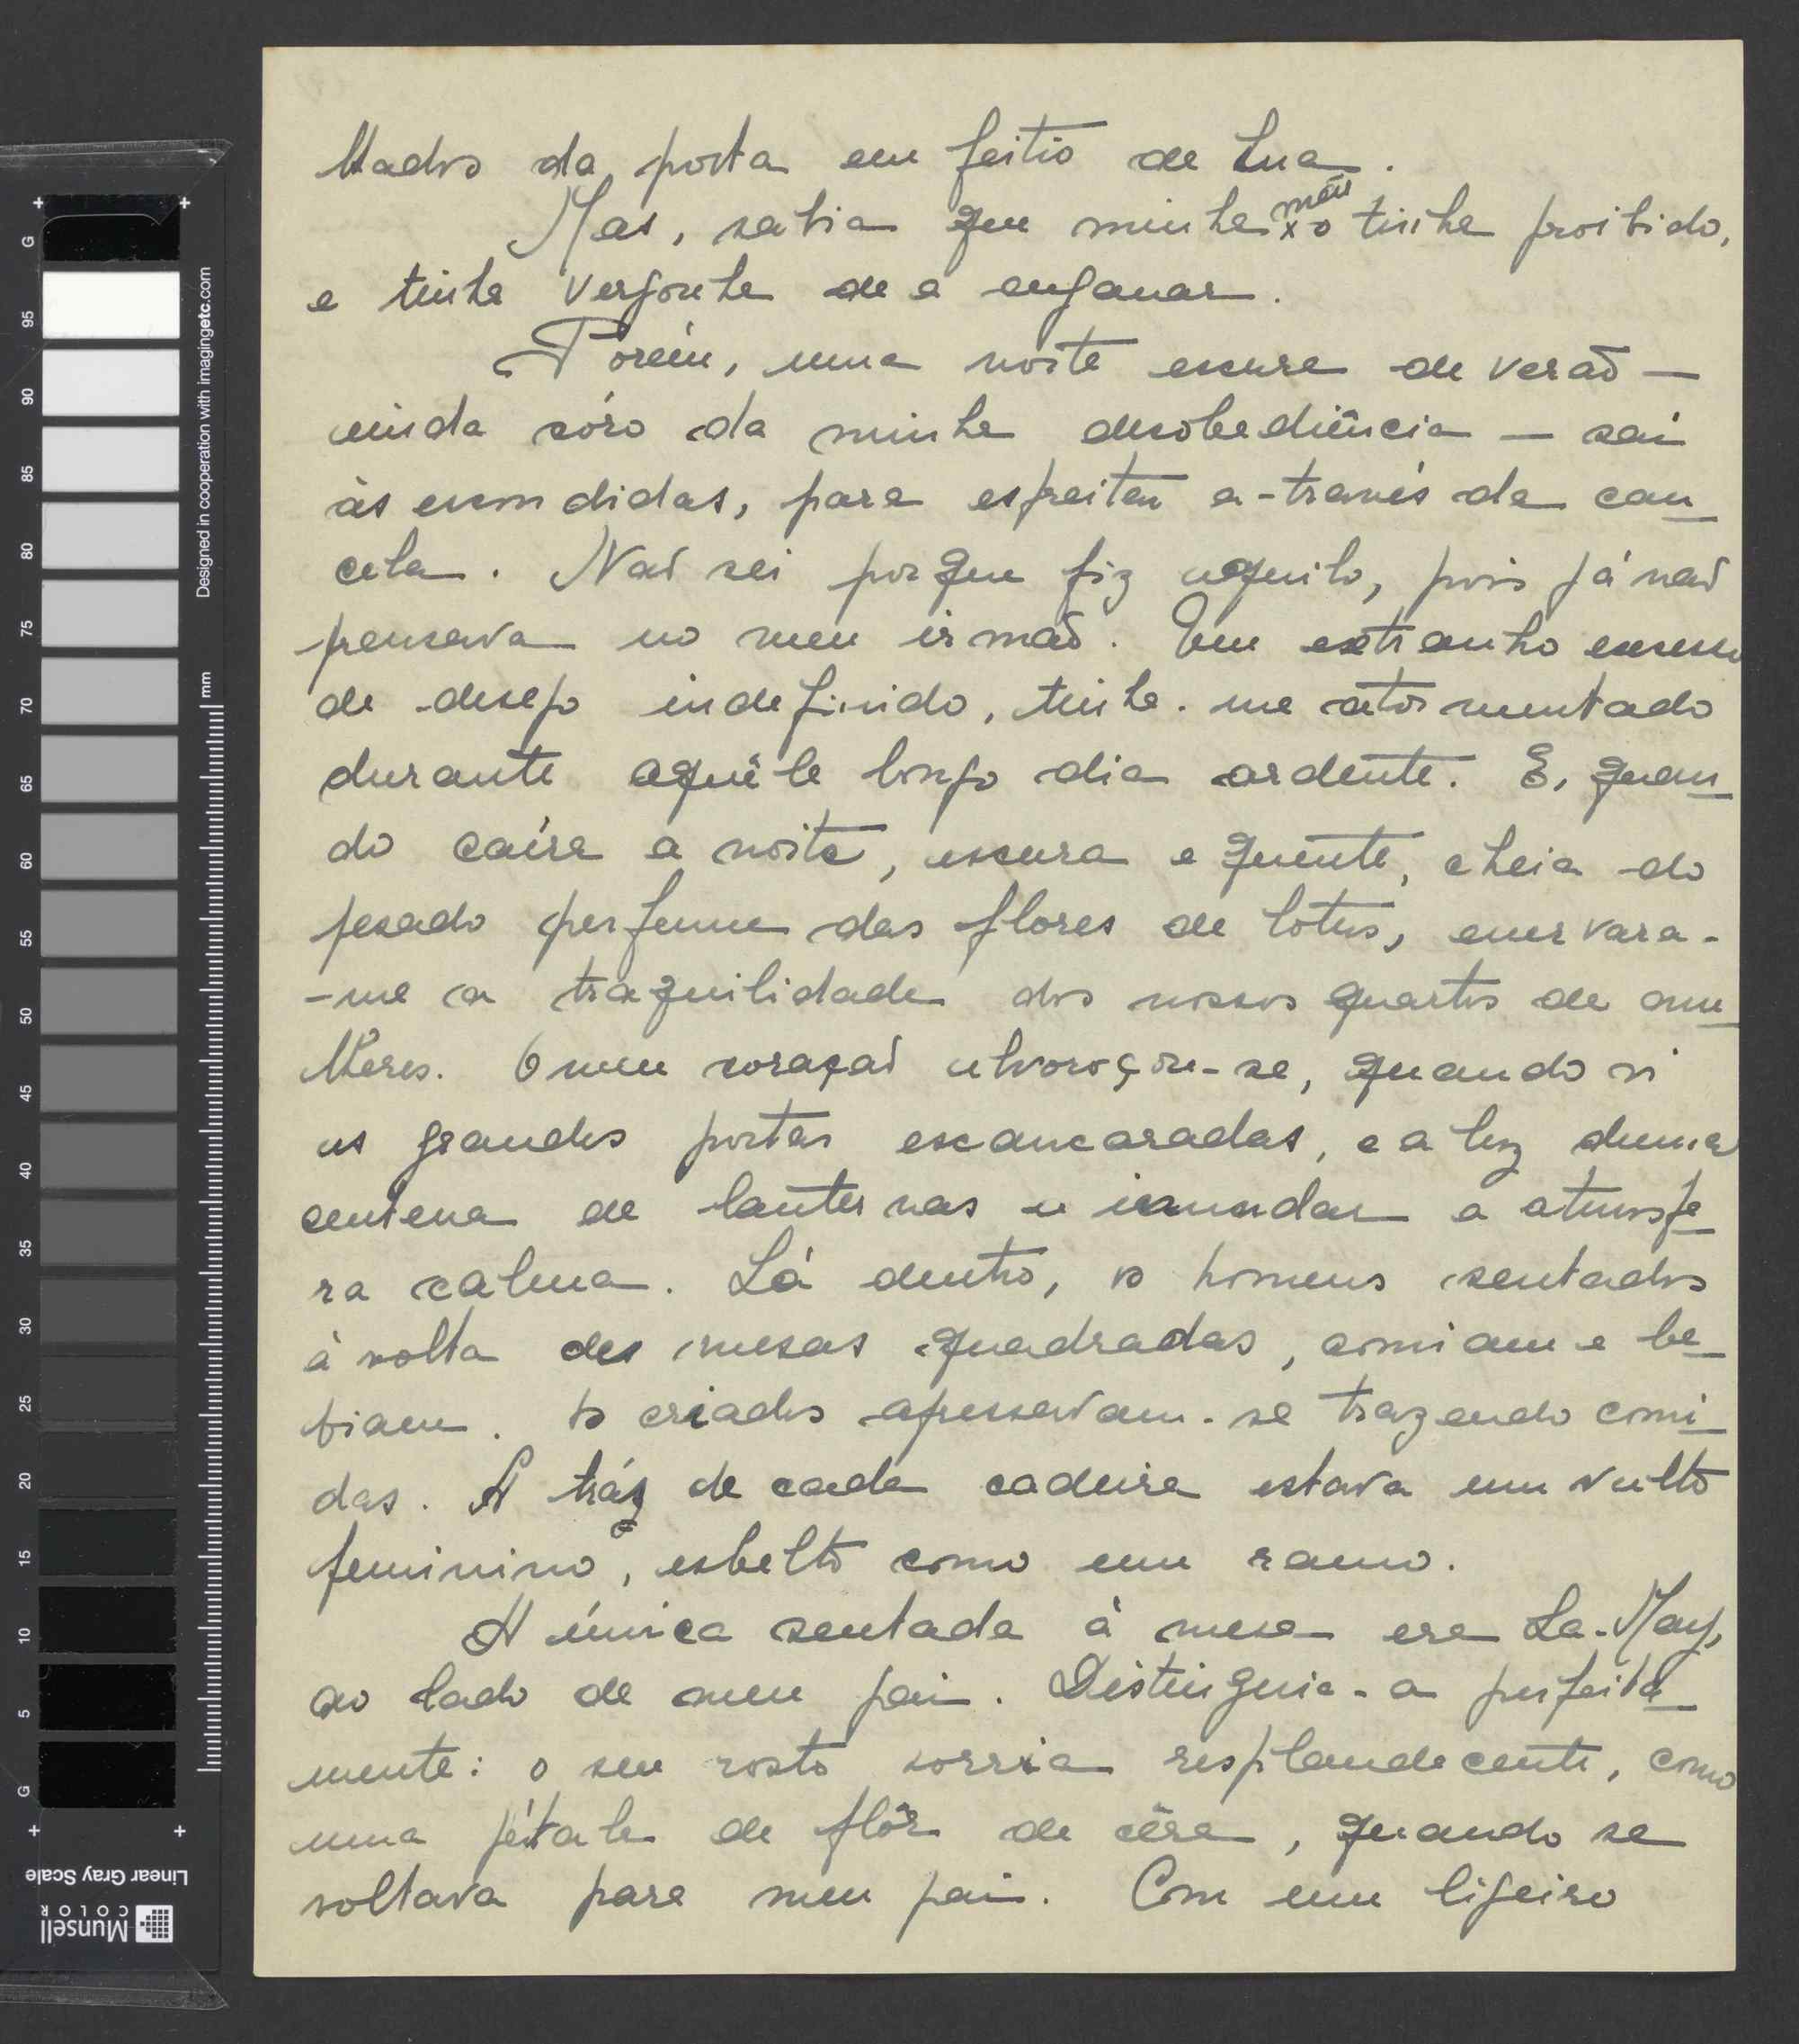 lhados da porta em feitio de Lua.
Mas, sabia que minha mãi o tinha proibido,
e tinha vergonha de a enganar.
Porém, uma noite escura de verão —
ainda córo da minha desobediência — saí
às escondidas, para espreitar a-través da can-
cela. Não sei porque fiz aquilo, pois já não
pensava no meu irmão. Um extranho excesso
de desejo indefinido, tinha-me atormentado
durante aquêle longo dia ardente. E, quan-
do caíra a noite, escura e quente, cheia do
pesado perfume das flores de lotus, enervara-
-me a traquilidade dos nossos quartos de mu-
lheres. O meu coração alvoroçou-se, quando vi
as grandes portas escancaradas, e a luz duma
centena de lanternas a inundar a atmosfe-
ra calma. Lá dentro, os homens sentados
à volta das mesas quadradas, comiam e be-
biam. Os criados apressavam-se trazendo comi-
das. A tráz de cada cadeira estava um vulto
feminino, esbelto como um ramo.
A única sentada à mesa era La-May,
ao lado de meu pai. Distinguia-a perfeita-
mente: o seu rosto sorria resplandecente, como
uma pétala de flôr de cêra, quando se
voltava para meu pai. Com um ligeiro
G 95 90 85 80 75 70 65 60 55 50 45 40 35 30 25 20 15 10 5 G
mm
Designed in cooperation with imagingetc.com
Linear Gray Scale
Munsell
COLOR